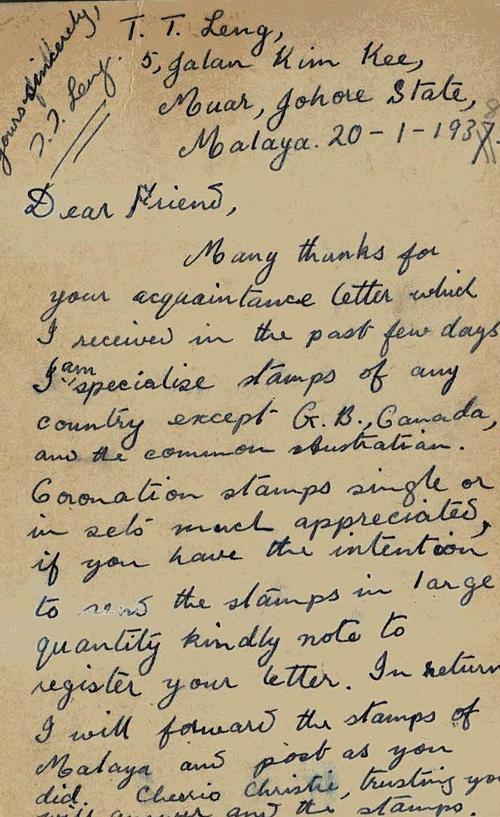 T. T. Leng,
5, Jalan Kim Kee,
Muar, Johore State,
Malaya. 20-1-1938.
Dear Friend,
Many thanks for
your acquaintance letter which
I received in the past few days
I am specialise stamps of any
country except G. B., Canada,
and the common Australian.
Coronation stamps single or
in sets much appreciated,
if you have the intention
to send the stamps in large
quantity kindly note to
register your letter. In return
I will forward the stamps of
Malaya and post as you
did. Cherrio Christie, trusting you
will answer and the stamps.
Yours sincerely,
T. T. Leng.